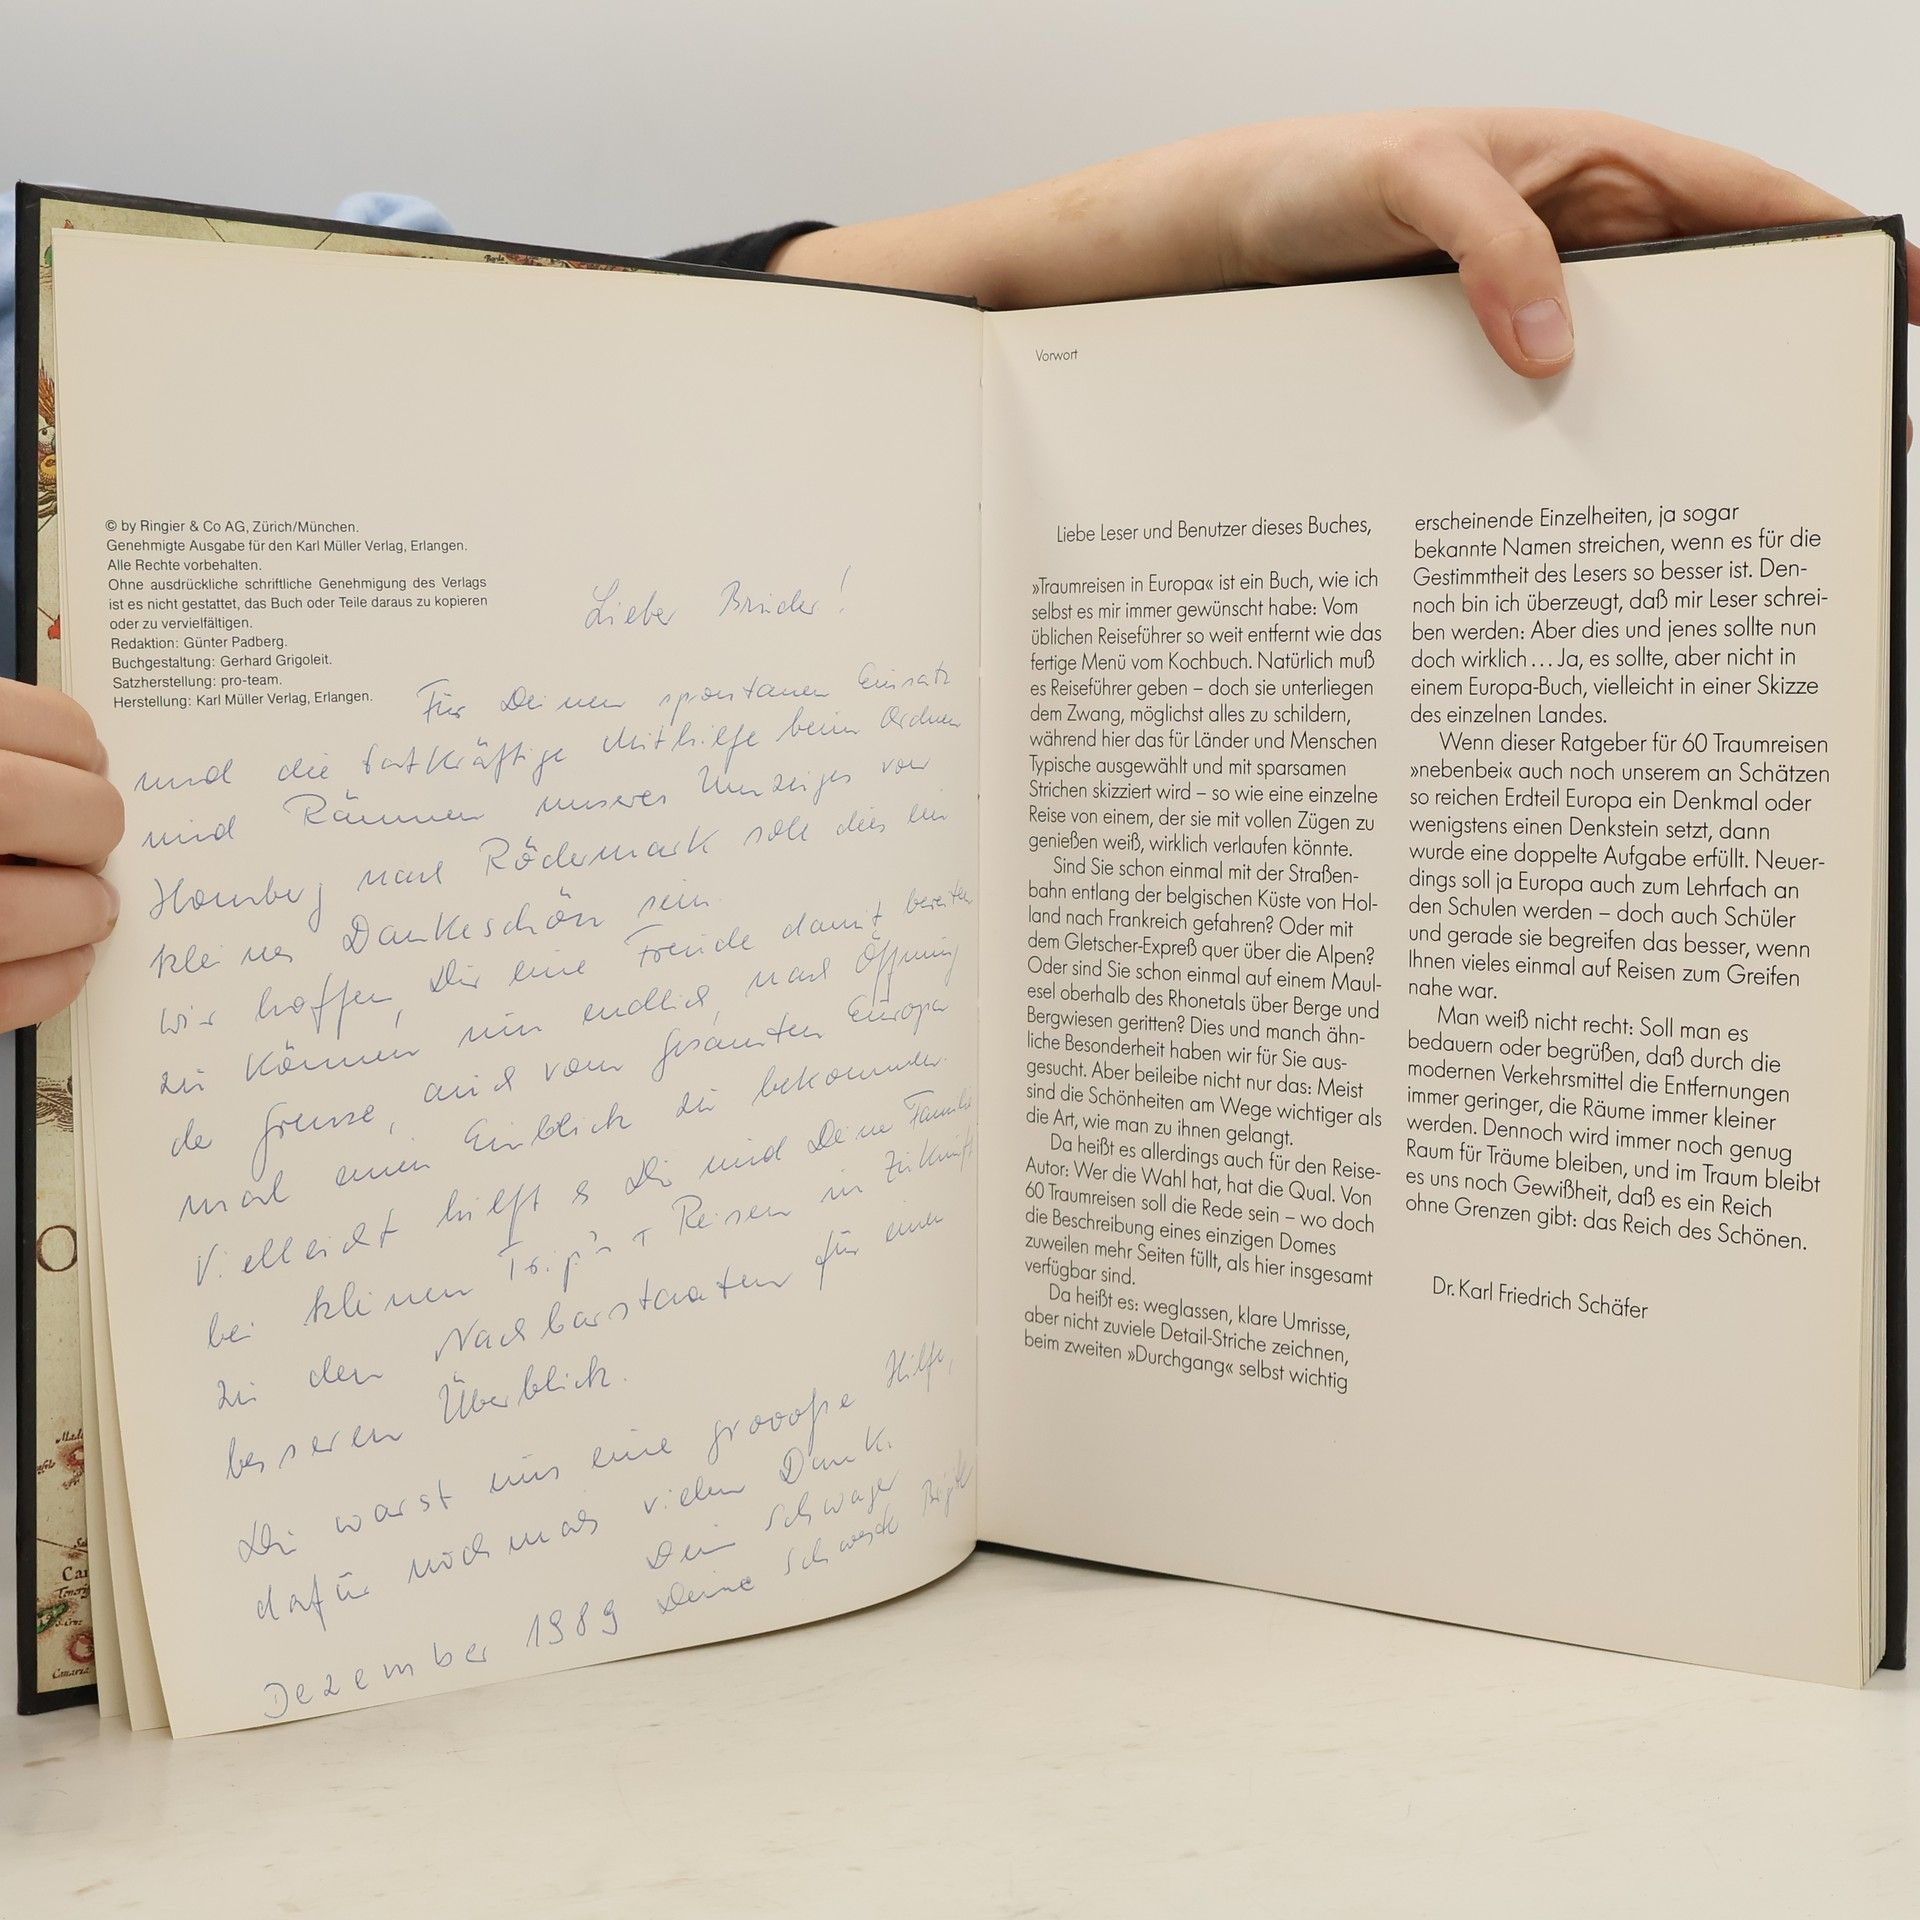 © by Ringier & Co AG, Zürich/München.
Genehmigte Ausgabe für den Karl Müller Verlag, Erlangen.
Alle Rechte vorbehalten.
Ohne ausdrückliche schriftliche Genehmigung des Verlags
ist es nicht gestattet, das Buch oder Teile daraus zu kopieren
oder zu vervielfältigen.
Redaktion: Günter Padberg.
Buchgestaltung: Gerhard Grigoleit.
Satzherstellung: pro-team.
Herstellung: Karl Müller Verlag, Erlangen.
Lieber Bruder!
Für Deinen spontanen Einsatz
und die tatkräftige Mithilfe beim Ordnen
und Räumen unseres Umzuges von
Homberg nach Rödermark soll dies ein
kleines Dankeschön sein.
Wir hoffen, Dir eine Freude damit bereiten
zu können nun endlich, nach Öffnung
der Grenze, auch vom gesamten Europa
mal einen Einblick zu bekommen.
Vielleicht hilft es Dir und Deiner Familie
bei kleinen Reisen in Zukunft
zu den Nachbarstaaten für einen
besseren Überblick.
Du warst uns eine groooße Hilfe,
dafür nochmals vielen Dank.
Dein Schwager
Deine Schwester Brigitte
Dezember 1989
Vorwort
Liebe Leser und Benutzer dieses Buches,
»Traumreisen in Europa« ist ein Buch, wie ich
selbst es mir immer gewünscht habe: Vom
üblichen Reiseführer so weit entfernt wie das
fertige Menü vom Kochbuch. Natürlich muß
es Reiseführer geben – doch sie unterliegen
dem Zwang, möglichst alles zu schildern,
während hier das für Länder und Menschen
Typische ausgewählt und mit sparsamen
Strichen skizziert wird – so wie eine einzelne
Reise von einem, der sie mit vollen Zügen zu
genießen weiß, wirklich verlaufen könnte.
Sind Sie schon einmal mit der Straßen-
bahn entlang der belgischen Küste von Hol-
land nach Frankreich gefahren? Oder mit
dem Gletscher-Expreß quer über die Alpen?
Oder sind Sie schon einmal auf einem Maul-
esel oberhalb des Rhonetals über Berge und
Bergwiesen geritten? Dies und manch ähn-
liche Besonderheit haben wir für Sie aus-
gesucht. Aber beileibe nicht nur das: Meist
sind die Schönheiten am Wege wichtiger als
die Art, wie man zu ihnen gelangt.
Da heißt es allerdings auch für den Reise-
Autor: Wer die Wahl hat, hat die Qual. Von
60 Traumreisen soll die Rede sein – wo doch
die Beschreibung eines einzigen Domes
zuweilen mehr Seiten füllt, als hier insgesamt
verfügbar sind.
Da heißt es: weglassen, klare Umrisse,
aber nicht zuviele Detail-Striche zeichnen,
beim zweiten »Durchgang« selbst wichtig
erscheinende Einzelheiten, ja sogar
bekannte Namen streichen, wenn es für die
Gestimmtheit des Lesers so besser ist. Den-
noch bin ich überzeugt, daß mir Leser schrei-
ben werden: Aber dies und jenes sollte nun
doch wirklich . . . Ja, es sollte, aber nicht in
einem Europa-Buch, vielleicht in einer Skizze
des einzelnen Landes.
Wenn dieser Ratgeber für 60 Traumreisen
»nebenbei« auch noch unserem an Schätzen
so reichen Erdteil Europa ein Denkmal oder
wenigstens einen Denkstein setzt, dann
wurde eine doppelte Aufgabe erfüllt. Neuer-
dings soll ja Europa auch zum Lehrfach an
den Schulen werden – doch auch Schüler
und gerade sie begreifen das besser, wenn
Ihnen vieles einmal auf Reisen zum Greifen
nahe war.
Man weiß nicht recht: Soll man es
bedauern oder begrüßen, daß durch die
modernen Verkehrsmittel die Entfernungen
immer geringer, die Räume immer kleiner
werden. Dennoch wird immer noch genug
Raum für Träume bleiben, und im Traum bleibt
es uns noch Gewißheit, daß es ein Reich
ohne Grenzen gibt: das Reich des Schönen.
Dr. Karl Friedrich Schäfer